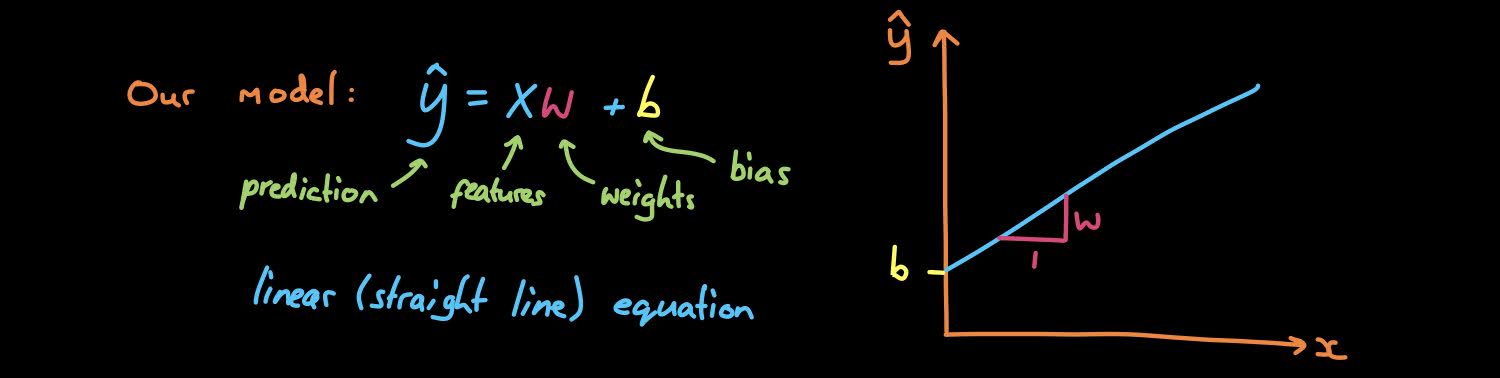 Our model: ŷ = Xw + b
prediction
features
weights
bias
linear (straight line) equation
ŷ
b
w
1
x